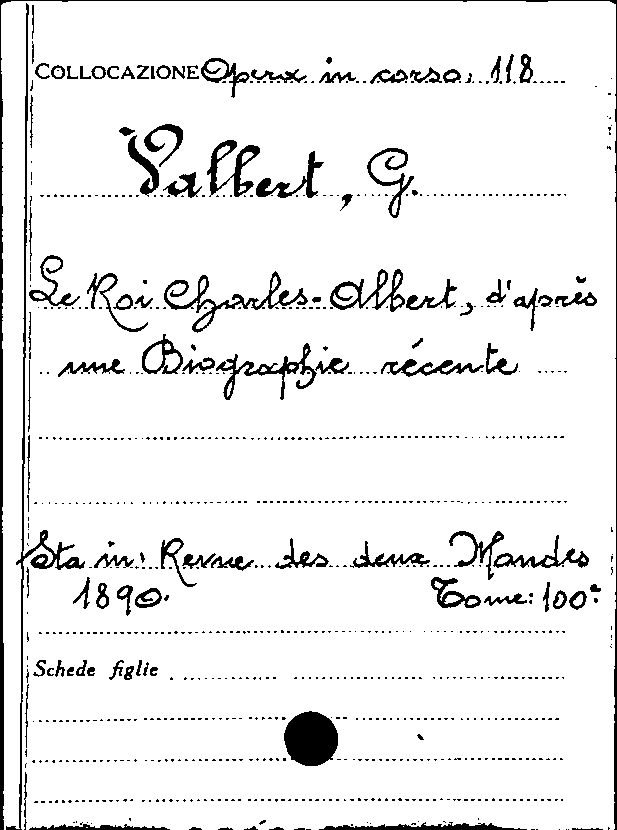 COLLOCAZIONE Opera in corso, 118
Valbert, G.
Le Roi Charles-Albert, d'après
une Biographie récente
Sta in: Revue des deux Mondes
1890. Tome: 100º
Schede figlie